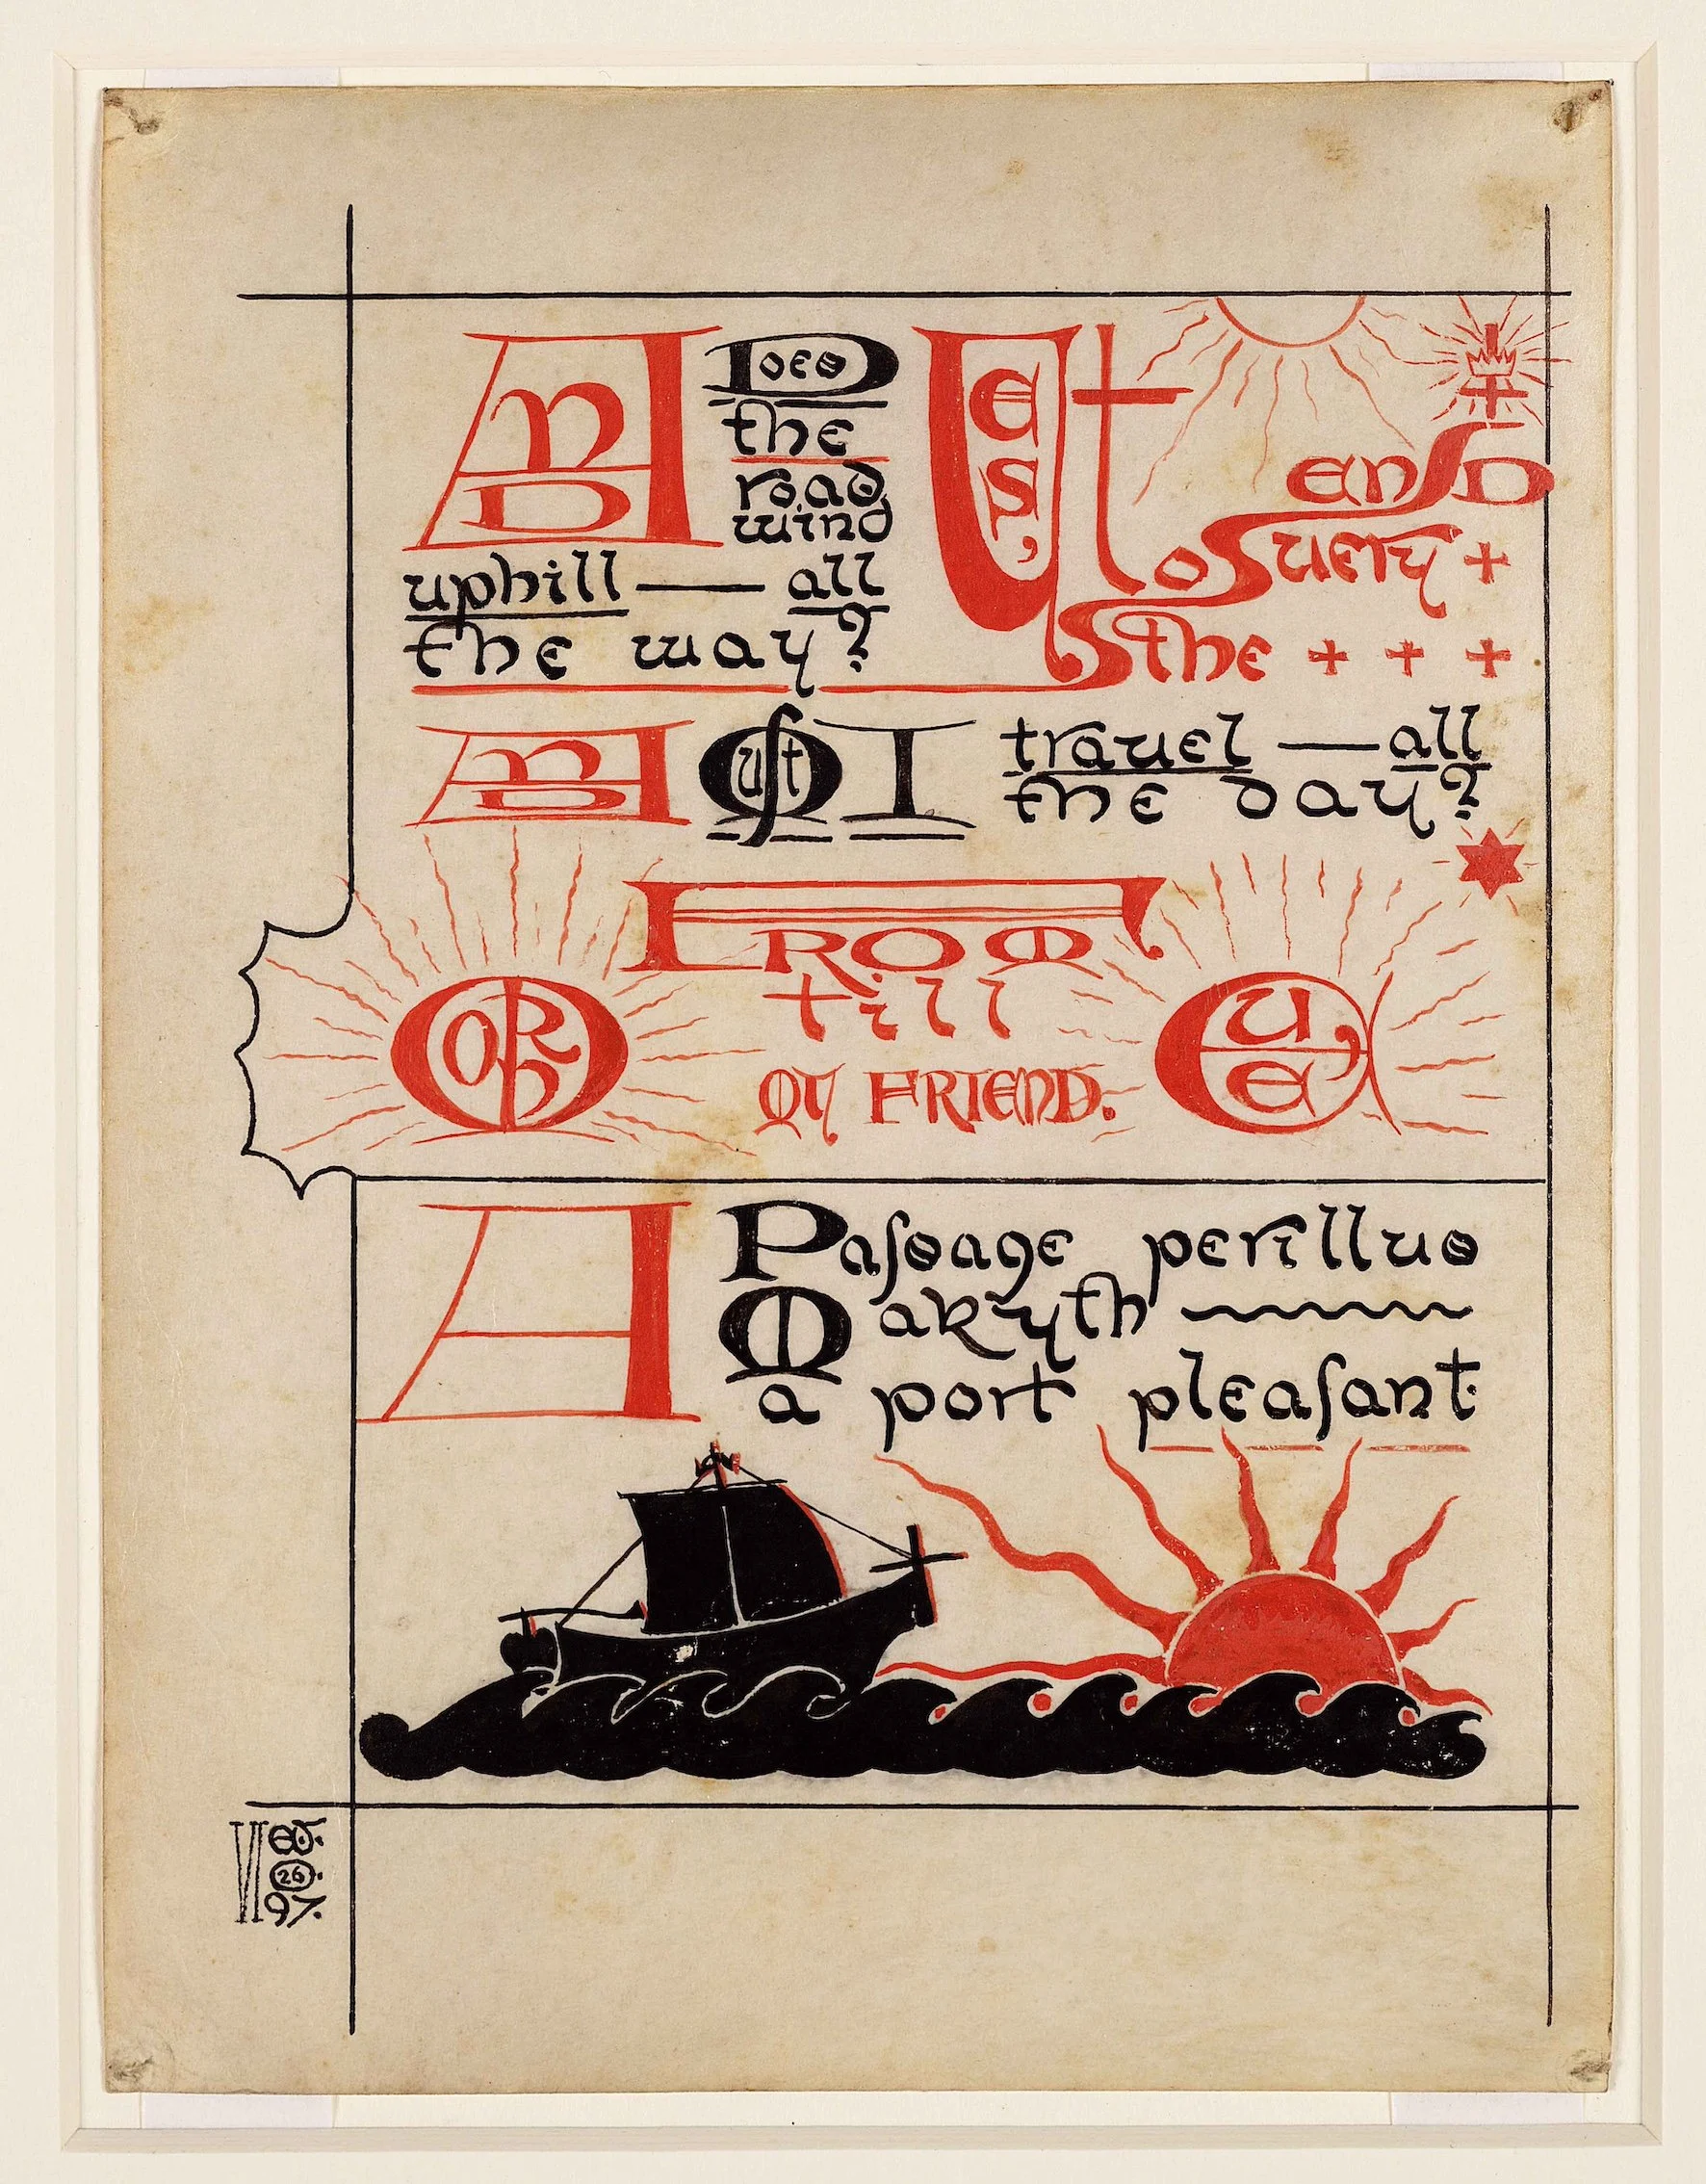 AND Does
the
road
wind
uphill — all
the way?
YES, to the
very end
AND MUST I travel — all
the day?
FROM
MORN till EVE,
MY FRIEND.
A Paſsage perillus
Makyth
a port pleaſant.
VI EJ.
26.
97.